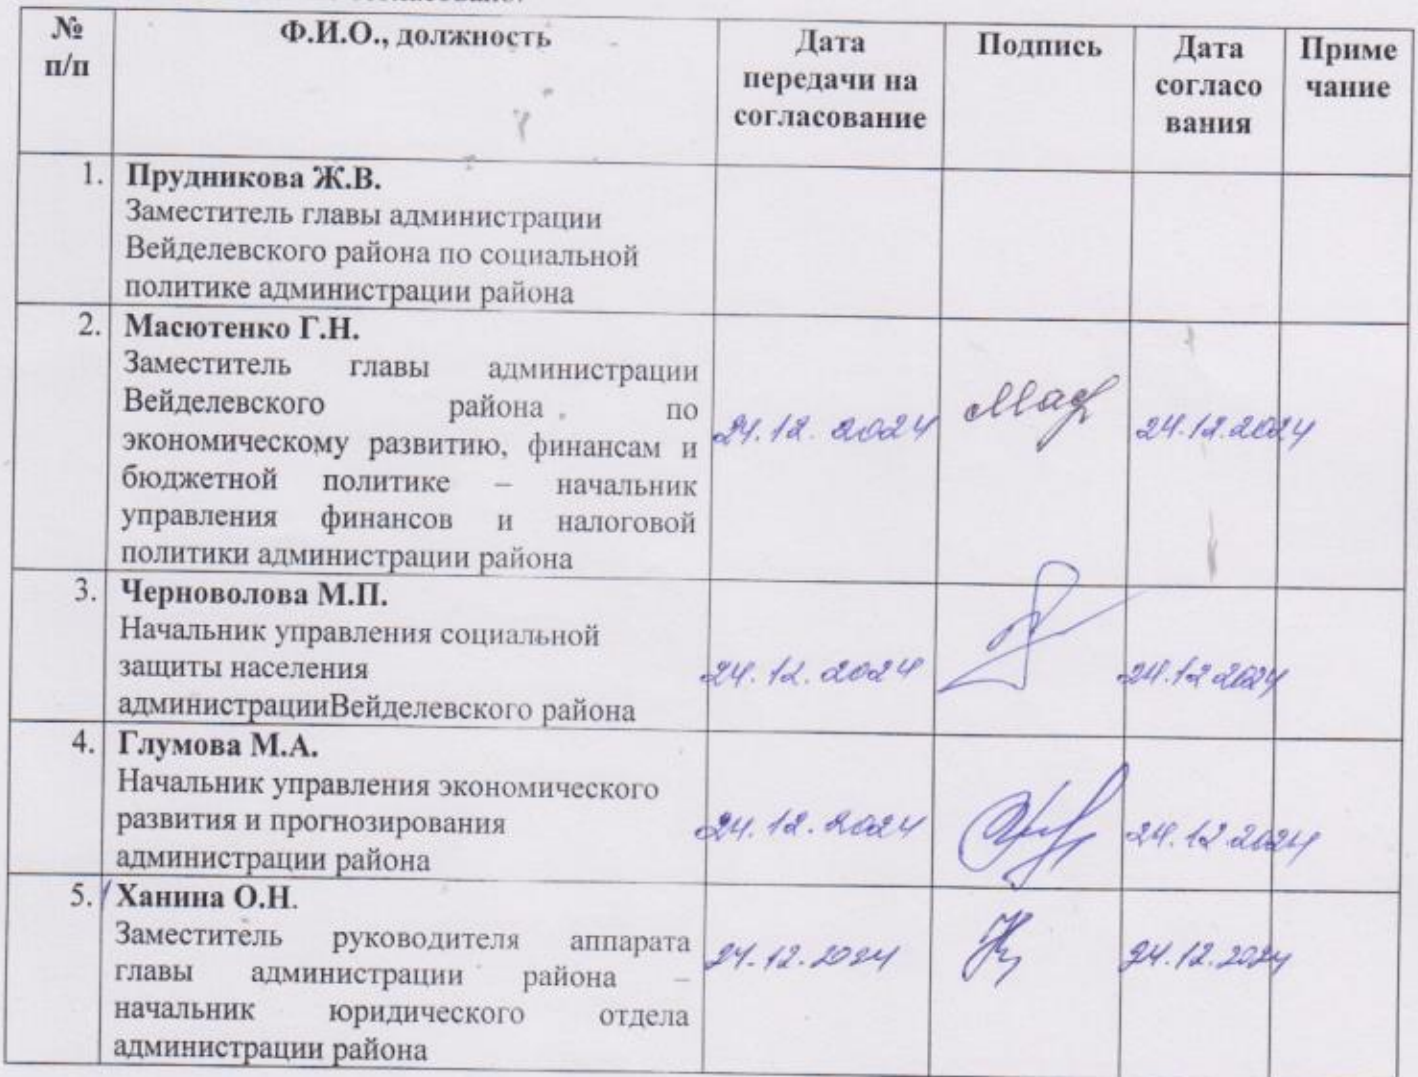 № п/п
Ф.И.О., должность
Дата передачи на согласование
Подпись
Дата согласо вания
Приме чание
1. Прудникова Ж.В.
Заместитель главы администрации
Вейделевского района по социальной
политике администрации района
2. Масютенко Г.Н.
Заместитель главы администрации
Вейделевского района по
экономическому развитию, финансам и
бюджетной политике – начальник
управления финансов и налоговой
политики администрации района
24.12.2024
24.12.2024
3. Черноволова М.П.
Начальник управления социальной
защиты населения
администрацииВейделевского района
24.12.2024
24.12.2024
4. Глумова М.А.
Начальник управления экономического
развития и прогнозирования
администрации района
24.12.2024
24.12.2024
5. Ханина О.Н.
Заместитель руководителя аппарата
главы администрации района –
начальник юридического отдела
администрации района
24.12.2024
24.12.2024